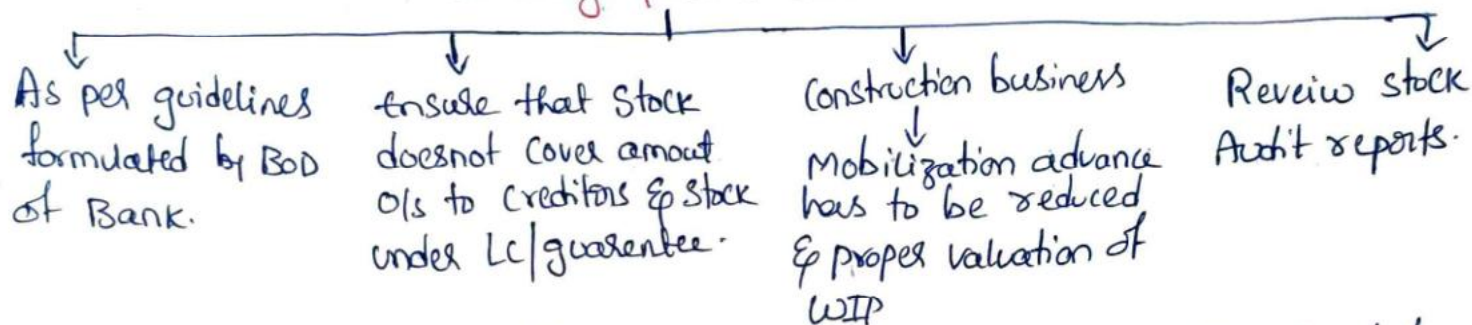 As per guidelines
formulated by BOD
of Bank.
Ensure that Stock
doesnot Cover amout
o/s to Creditors & Stock
under LC/guarentee.
Construction business
Mobilization advance
has to be reduced
& proper valuation of
WIP
Reveiw stock
Audit reports.